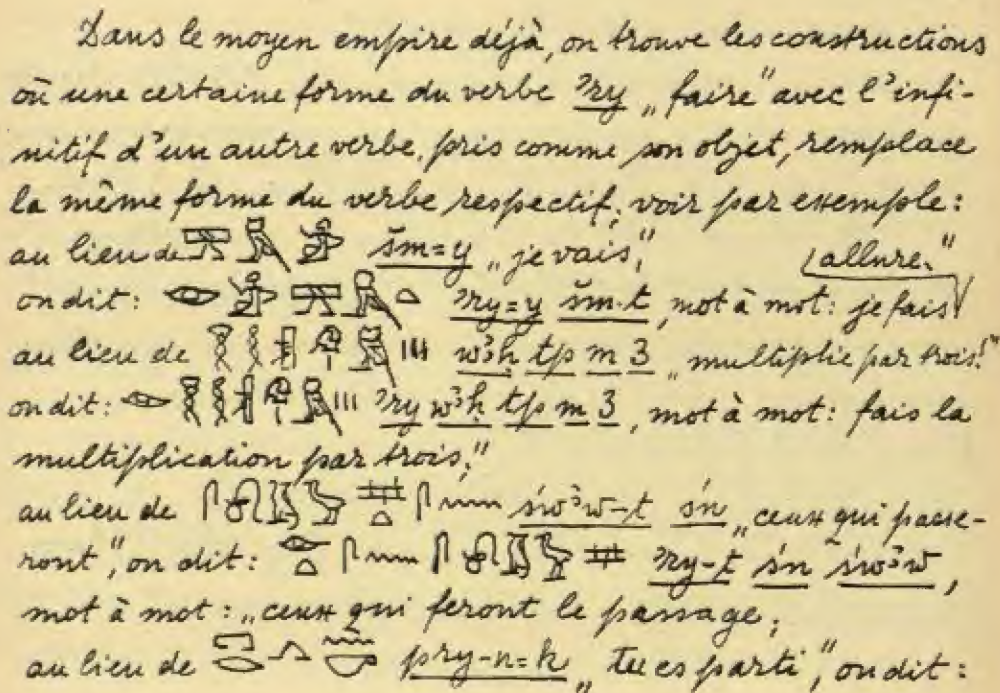 Dans le moyen empire déjà, on trouve les constructions
où une certaine forme du verbe ꜣry „faire" avec l'infi-
nitif d'un autre verbe, pris comme son objet, remplace
la même forme du verbe respectif; voir par exemple:
au lieu de šm=y „je vais,"
on dit: ꜣry=y šm-t, mot à mot: je fais allure."
au lieu de wꜣḥ tp m 3 „multiplie par trois!"
on dit: ꜣry wꜣḥ tp m 3, mot à mot: fais la
multiplication par trois,"
au lieu de św̓ꜣw-t śn „ceux qui passe-
ront", on dit: ꜣry-t śn św̓ꜣw,
mot à mot: „ceux qui feront le passage;
au lieu de pry-n=k „tu es parti", on dit: